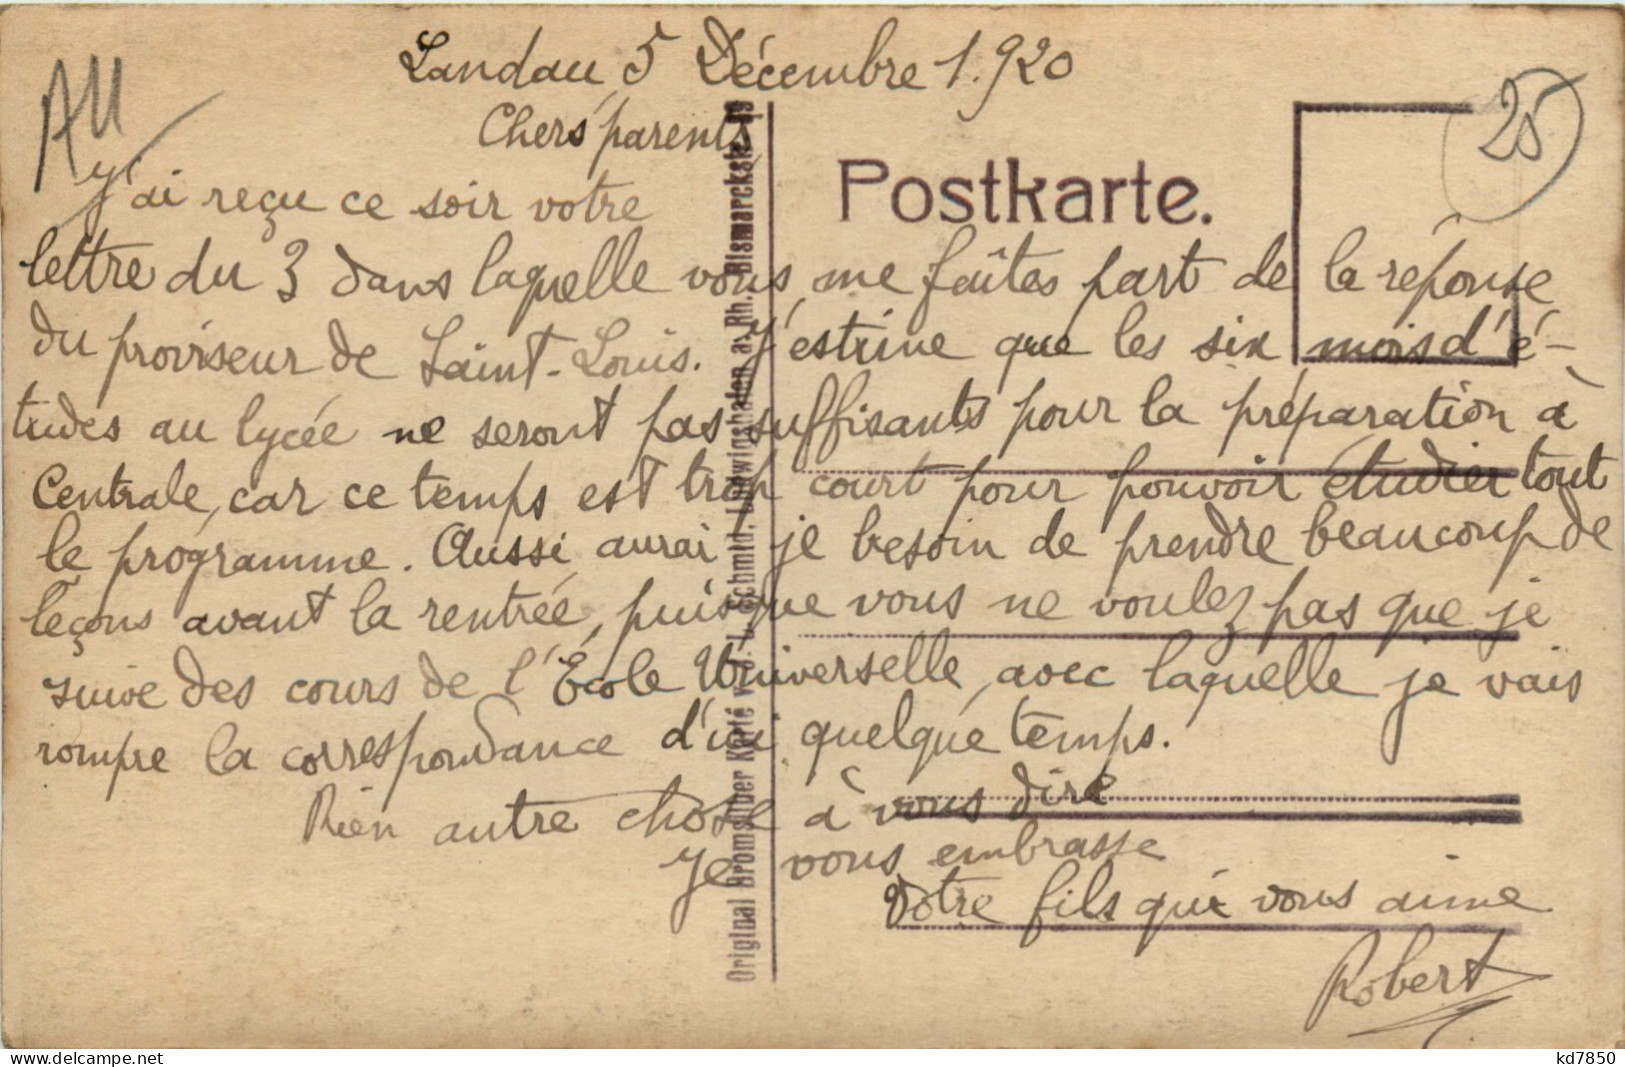 Landau 5 Décembre 1.920
Chers parents
J'ai reçu ce soir votre
lettre du 3 dans laquelle vous me faîtes part de la réponse
du proviseur de Saint-Louis. J'estime que les six mois d'é-
tudes au lycée ne seront pas suffisants pour la préparation à
Centrale, car ce temps est trop court pour pouvoir étudier tout
le programme. Aussi aurai je besoin de prendre beaucoup de
leçons avant la rentrée, puisque vous ne voulez pas que je
suive des cours de l'École Universelle, avec laquelle je vais
rompre la correspondance d'ici quelque temps.
Rien autre chose à vous dire
Je vous embrasse
Votre fils qui vous aime
Robert
Postkarte.
25
All
Original Bromsilber Karte v. J. Schmid, Ludwigshafen a. Rh. Bismarckstr.
www.delcampe.net
kd7850